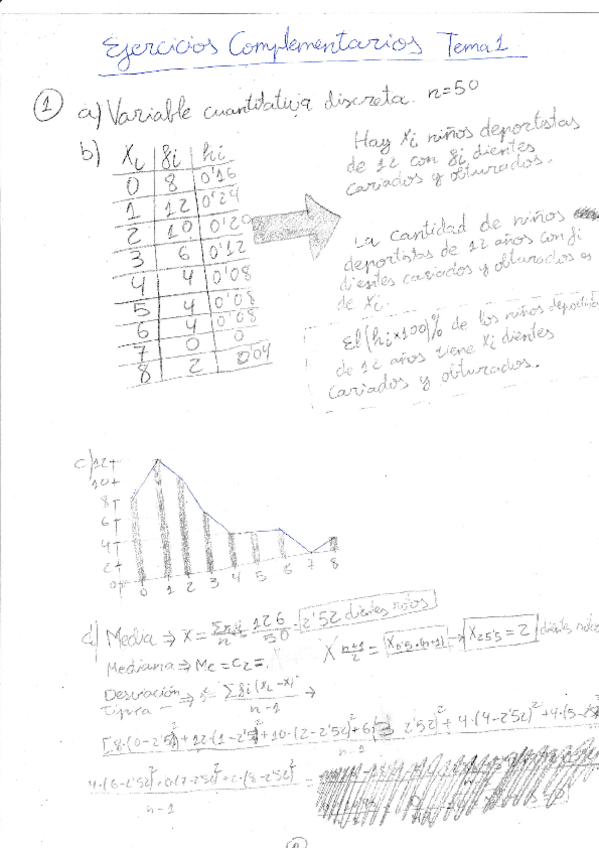 Ejercicios Complementarios Tema 1
① a) Variable cuantitativa discreta. n=50
b) Xi fi hi
0 8 0'16
1 12 0'24
2 10 0'20
3 6 0'12
4 4 0'08
5 4 0'08
6 4 0'08
7 0 0
8 2 0'04
Hay Xi niños deportistas
de 12 con fi dientes
cariados y obturados.
La cantidad de niños
deportistas de 12 años con fi
dientes cariados y obturados es
de Xi.
El (hi×100)% de los niños deportistas
de 12 años tiene Xi dientes
cariados y obturados.
c) 12
10
8
6
4
2
0
0 1 2 3 4 5 6 7 8
d) Media ⇒ X = = 126/50 = 2'52 dientes
Mediana ⇒ Me = C2 = X n+1/2 = X0'5·(n+1) → X25'5 = 2 dientes
Desviación
Típica ⇒ = Σfi(xi-x)²/n-1 →
[8·(0-2'52)²+12·(1-2'52)²+10·(2-2'52)²+6·(3-2'52)²+4·(4-2'52)²+4·(5-2'52)²
n-1
4·(6-2'52)²+0·(7-2'52)²+2·(8-2'52)² =
n-1